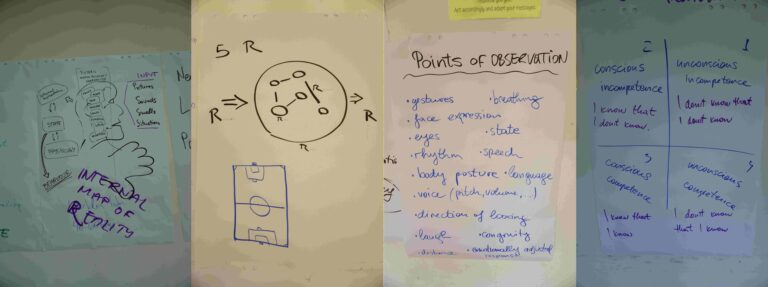 INPUT
Pictures
Sounds
Smells
Situations
STATE
INTERNAL
MAP OF
REALITY
5 R
R
R
R
R
Act accordingly and adapt your messages
POINTS OF OBSERVATION
• gestures
• breathing
• face expression
• eyes
• state
• rhythm
• speech
• body posture
• language
• voice (pitch, volume, ...)
• direction of looking
• laugh
• congruity
• distance
2
conscious
incompetence
I know that
I don't know.
1
unconscious
incompetence
I don't know that
I don't know
3
conscious
competence
I know that
I know
4
unconscious
competence
I don't know
that I know